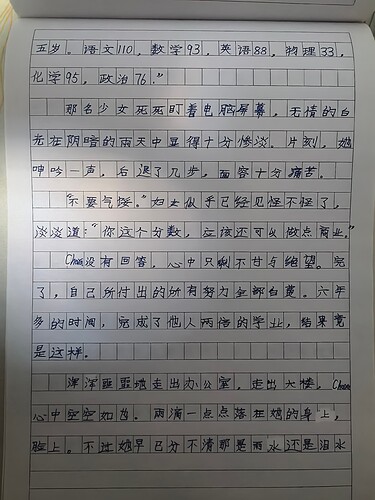 五岁。语文110,数学93,英语88,物理33,
化学95,政治76。”
那名少女死死盯着电脑屏幕,无情的白
光在阴暗的雨天中显得十分惨淡。片刻,她
呻吟一声,后退了几步,面容十分痛苦。
“不要气馁。”妇女似乎已经见怪不怪了,
淡淡道:“你这个分数,应该还可以做点商业。”
没有回答,心中只剩不甘与绝望。完
了,自己所付出的所有努力全部白费。六年
多的时间,完成了他人两倍的学业,结果竟
是这样。
浑浑噩噩地走出办公室,走出大楼,
心中空空如也。雨滴一点点落在她的身上,
脸上。不过她早已分不清那是雨水还是泪水